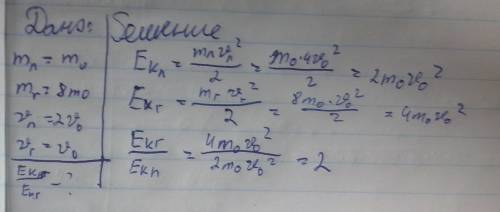 Дано:
m_л = m_0
m_г = 8m0
v_л = 2v_0
v_г = v_0
E_кг/E_кг - ?
Решение
E_кл = m_л v_л²/2 = m_0·4v_0²/2 = 2m_0v_0²
E_кг = m_г v_г²/2 = 8m_0·v_0²/2 = 4m_0v_0²
E_кг/E_кл = 4m_0v_0²/2m_0v_0² = 2